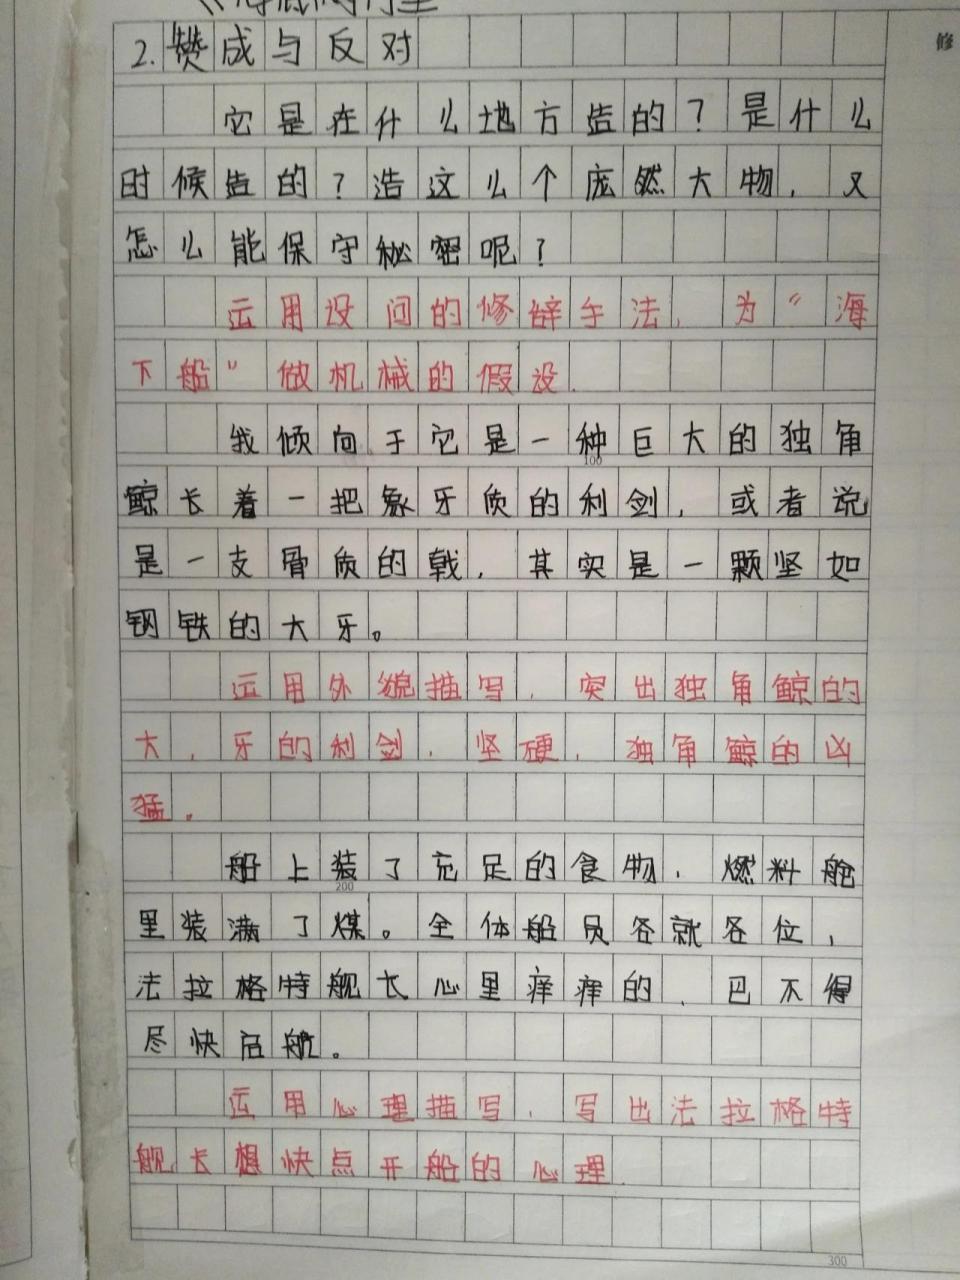 2.赞成与反对
修
它是在什么地方造的？是什么
时候造的？造这么个庞然大物，又
怎么能保守秘密呢？
运用设问的修辞手法，为“海
下船”做机械的假设.
我倾向于它是一种巨大的独角
100
鲸长着一把象牙质的利剑，或者说
是一支骨质的戟，其实是一颗坚如
钢铁的大牙。
运用外貌描写，突出独角鲸的
大，牙的利剑，坚硬，独角鲸的凶
猛。
船上装了充足的食物，燃料舱
200
里装满了煤。全体船员各就各位，
法拉格特舰长心里痒痒的，巴不得
尽快启航。
运用心理描写，写出法拉格特
舰长想快点开船的心理.
300